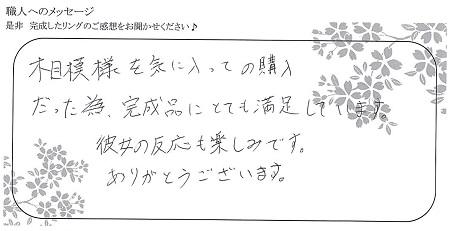 職人へのメッセージ
是非 完成したリングのご感想をお聞かせください♪
木目模様を気に入っての購入
だった為、完成品にとても満足しています。
彼女の反応も楽しみです。
ありがとうございます。